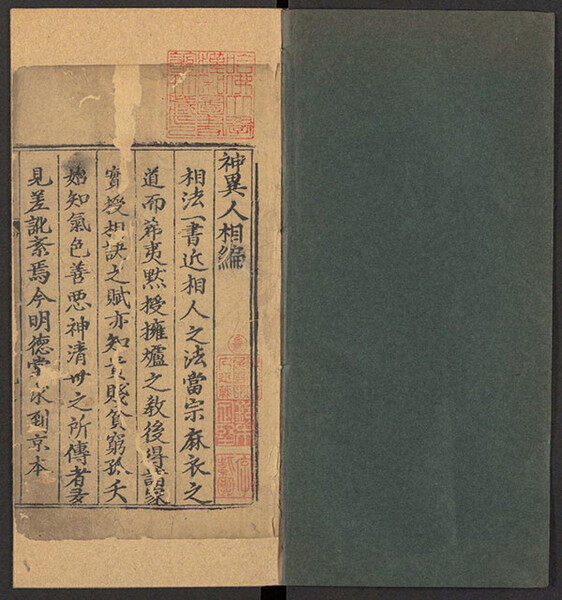 神異人相編
相法一書近相人之法當宗麻衣之
道而希夷黙授擁爐之教後得
實授相訣之賦亦知貴賤貧窮殀夭
始知氣色善惡神清丗之所傳者多
見差訛紊焉今明德堂求到京本